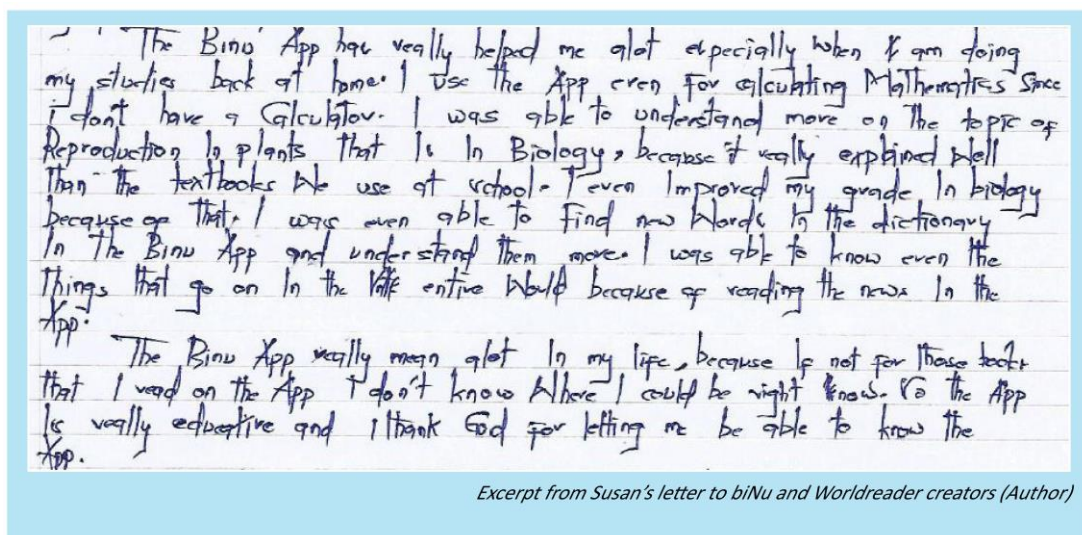 The Binu App has really helped me alot especially when I am doing
my studies back at home. I use the App even for calculating Mathematics since
i don't have a Calculator. I was able to understand more on the topic of
Reproduction In plants that Is In Biology, because it really explained well
than the textbooks we use at school. I even Improved my grade In biology
because of that. I was even able to find new words In the dictionary
In the Binu App and understand them more. I was able to know even the
things that go on In the entire would because of reading the news In the
App.
The Binu App really mean alot In my life, because Is not for those books
that I read on the App I don't know where I could be right know. So the App
Is really educative and i thank God for letting me be able to know the
App.
Excerpt from Susan's letter to biNu and Worldreader creators (Author)